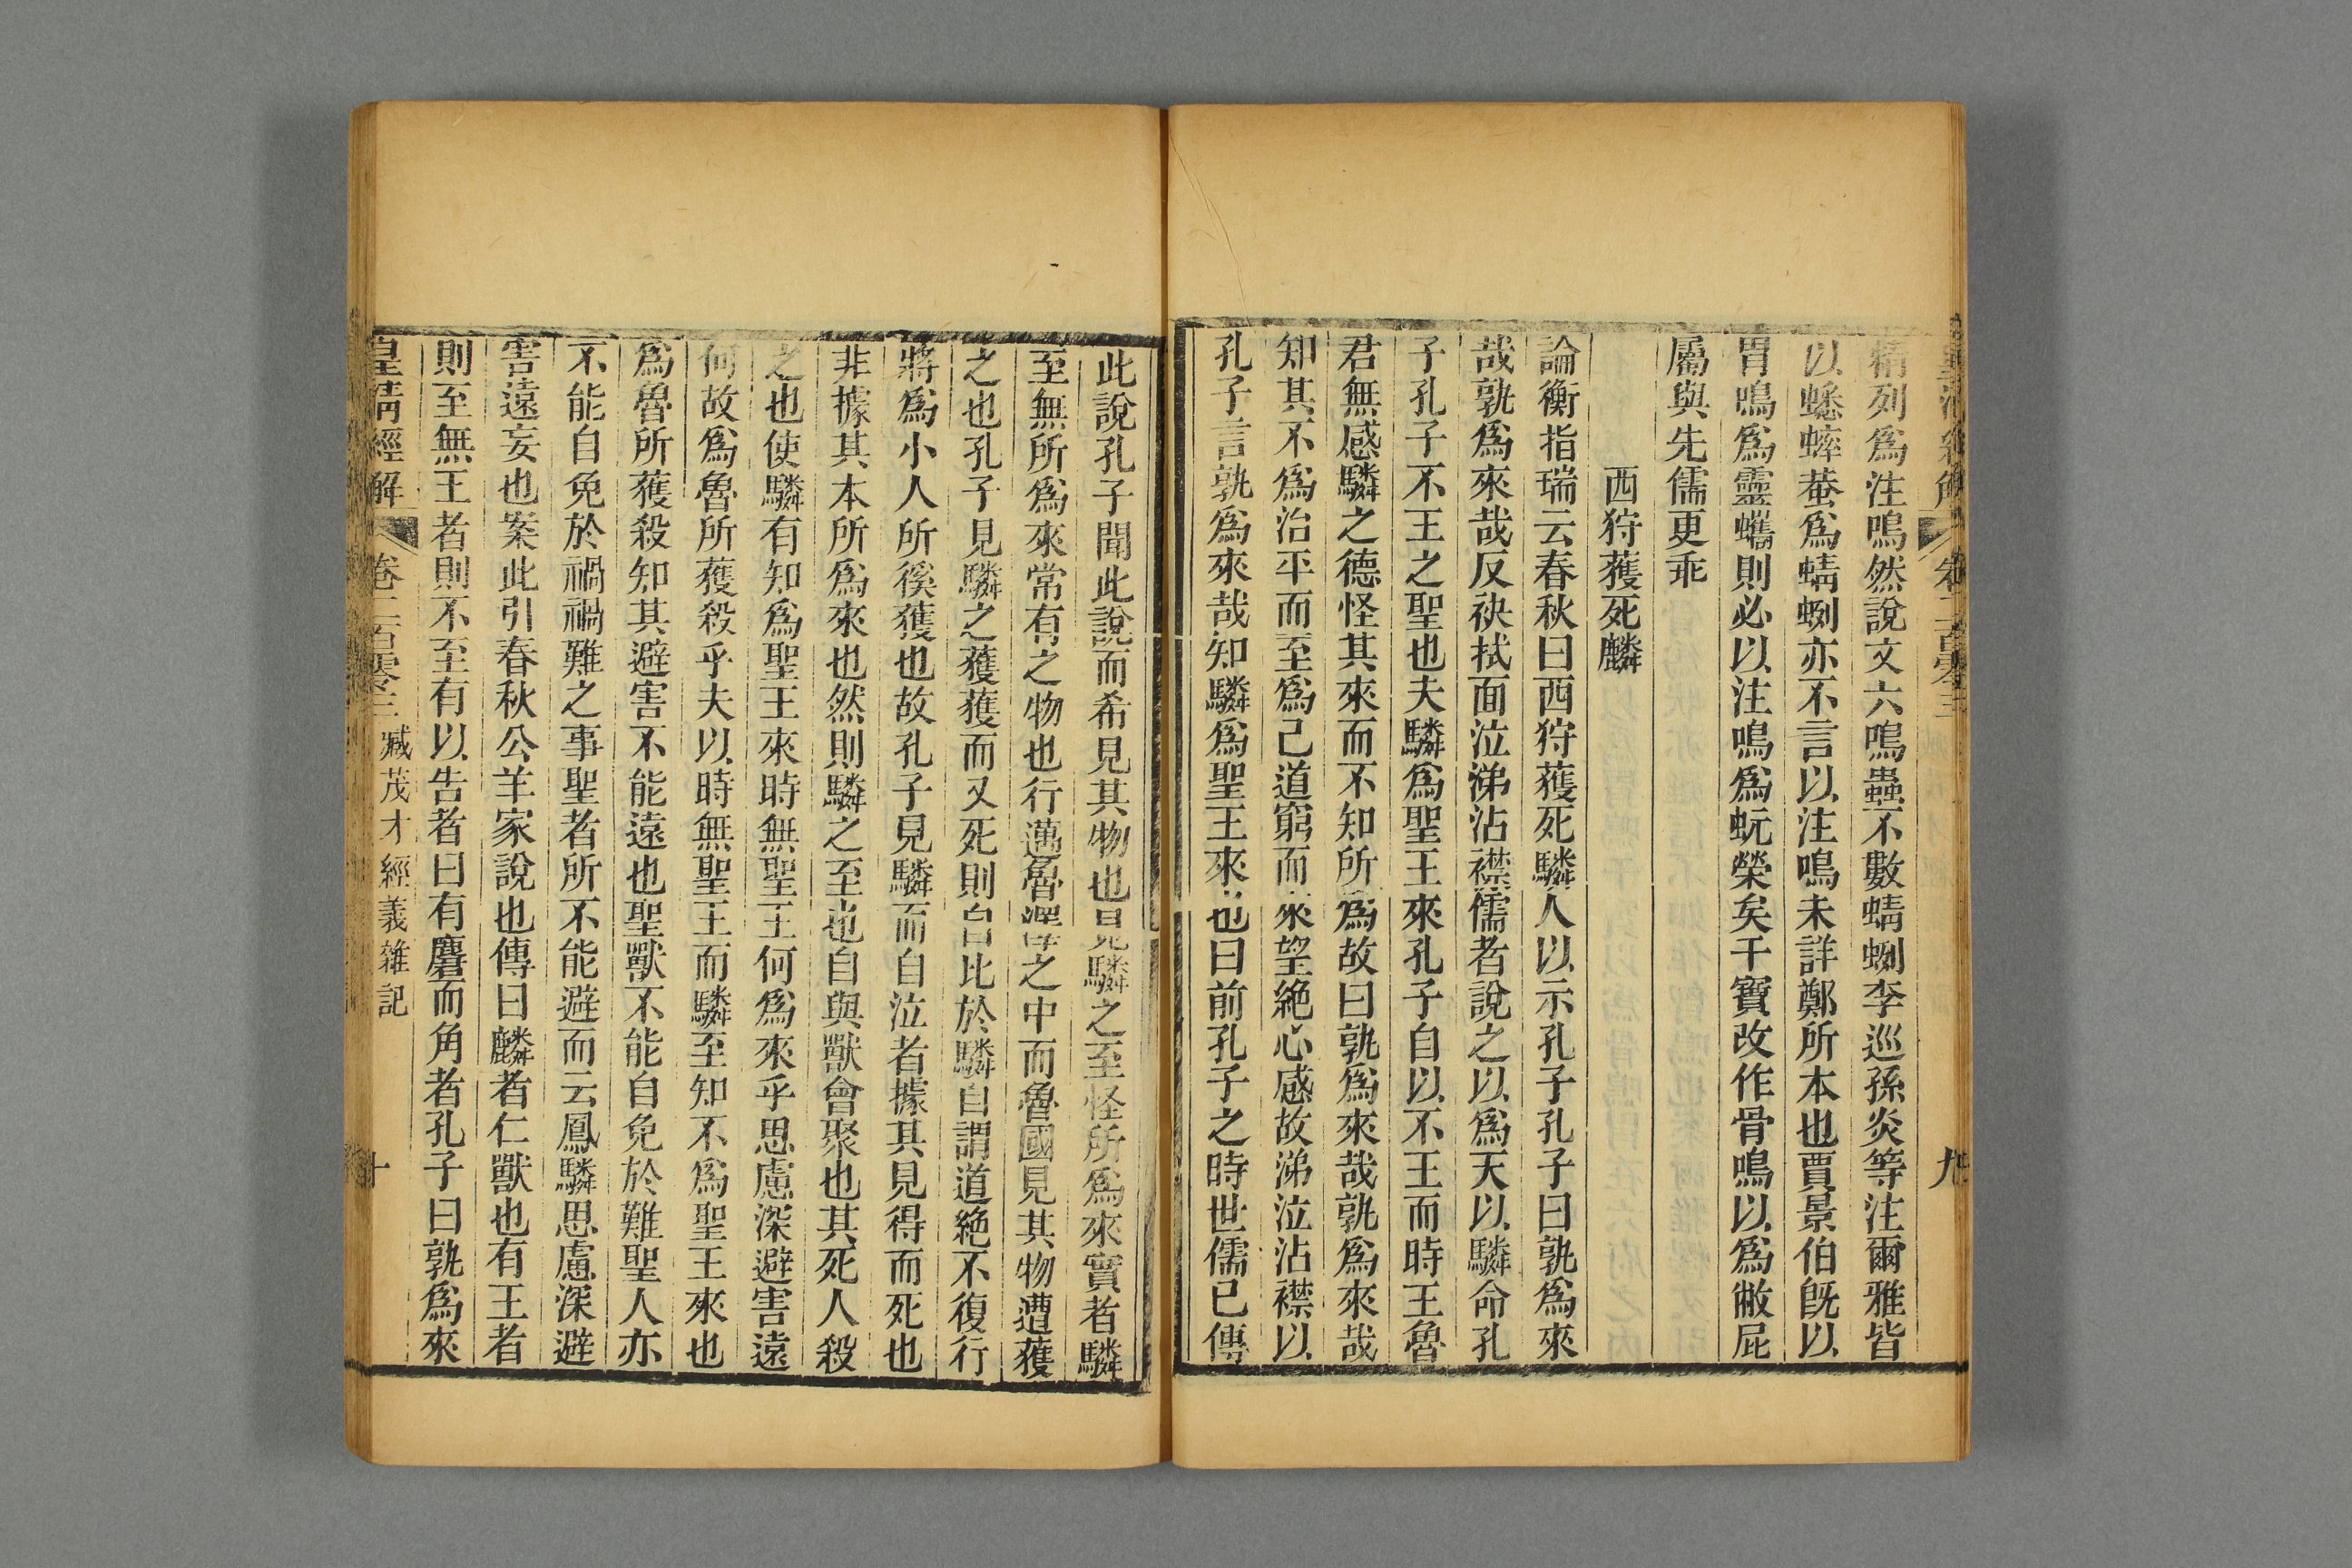 精列爲注鳴然說文六鳴蟲不數蜻蛚李巡孫炎等注爾雅皆
以蟋蟀蛬爲蜻蛚亦不言以注鳴未詳鄭所本也賈景伯旣以
胃鳴爲靈蠵則必以注鳴爲蚖榮矣干寶改作骨鳴以爲敝屁
屬與先儒更乖
西狩獲死麟
論衡指瑞云春秋曰西狩獲死驎人以示孔子孔子曰孰爲來
哉孰爲來哉反袂拭面泣涕沾襟儒者說之以爲天以驎命孔
子孔子不王之聖也夫驎爲聖王來孔子自以不王而時王魯
君無感驎之德怪其來而不知所爲故曰孰爲來哉孰爲來哉
知其不爲治平而至爲己道窮而來望絶心感故涕泣沾襟以
孔子言孰爲來哉知驎爲聖王來也曰前孔子之時世儒已傳
此說孔子聞此說而希見其物也見驎之至怪所爲來實者驎
至無所爲來常有之物也行邁魯澤之中而魯國見其物遭獲
之也孔子見驎之獲獲而又死則自比於驎自謂道絶不復行
將爲小人所徯獲也故孔子見驎而自泣者據其見得而死也
非據其本所爲來也然則驎之至也自與獸會聚也其死人殺
之也使驎有知爲聖王來時無聖王何爲來乎思慮深避害遠
何故爲魯所獲殺乎夫以時無聖王而驎至知不爲聖王來也
爲魯所獲殺知其避害不能遠也聖獸不能自免於難聖人亦
不能自免於禍禍難之事聖者所不能避而云鳳驎思慮深避
害遠妄也案此引春秋公羊家說也傳曰麟者仁獸也有王者
則至無王者則不至有以告者曰有麏而角者孔子曰孰爲來
皇淸經解 卷二百零三 臧茂才經義雜記 十